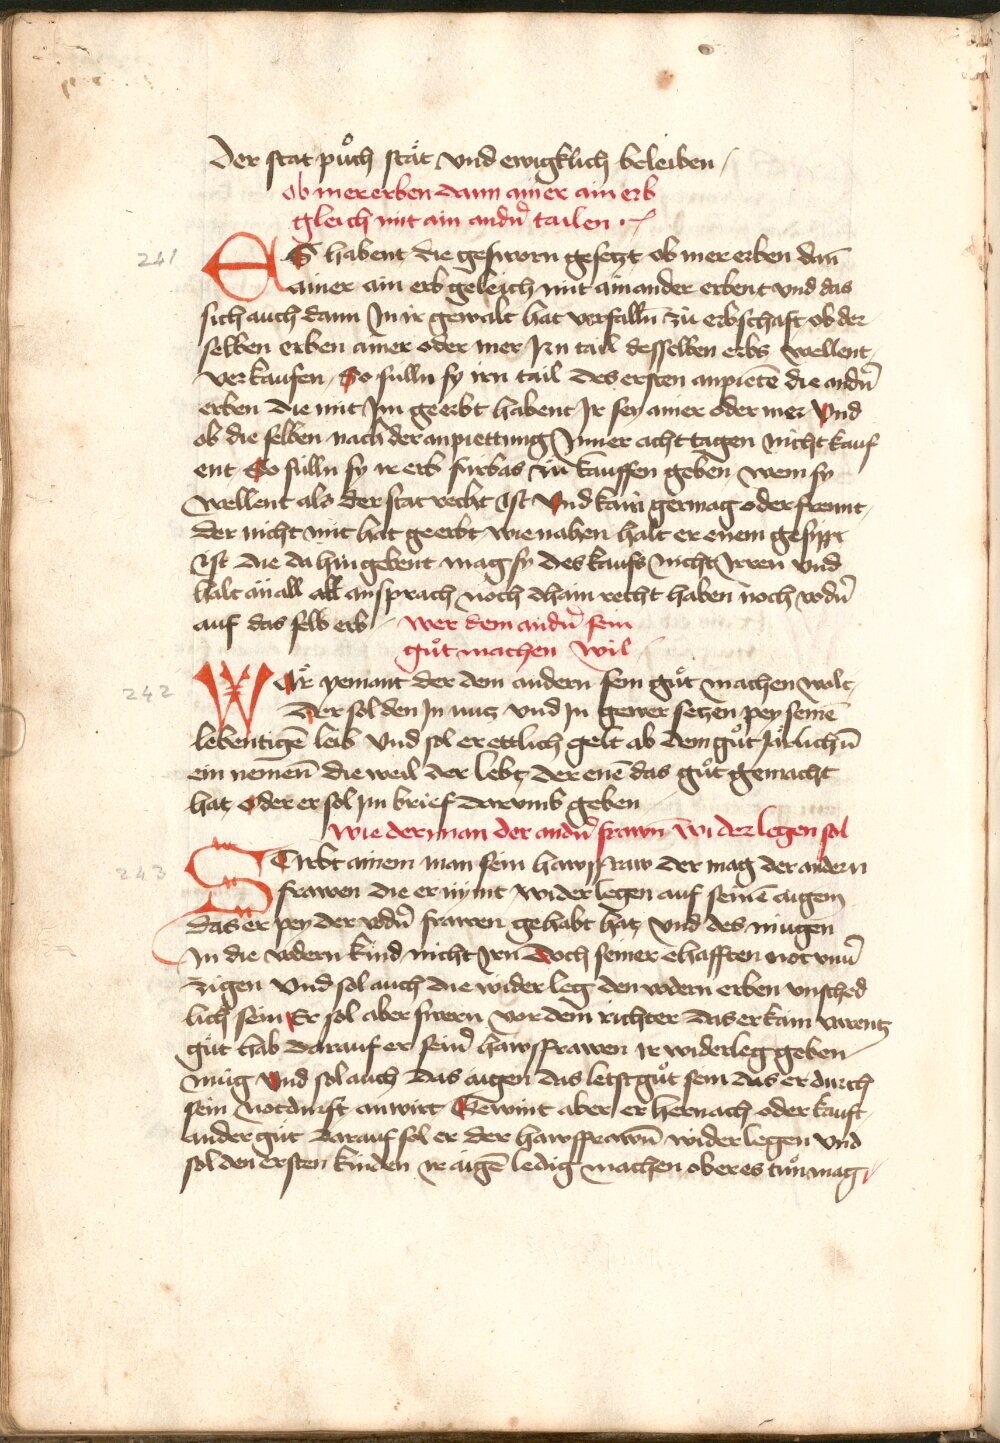 der stat puͦch stät vnd ewigklich beleiben /
ob mer erben dann ainer ain erb
gleich mit ain andn̄ tailen
241 ES habent die gesworn gesetzt ob mer erben dan̄
ainer ain erb geleich mit ain ander erbent vnd das
sich auch dann In ir gewalt hat veruallñ zu erbschaft ob der
selben erben ainer oder mer Irn tail desselben erbs wellent
verkaufen / So sulln sy irn tail des ersten anpietē die andn̄
erben die mit Im geerbt habent Ir sey ainer oder mer Vnd
ob die selben nach der anpiettung Inner acht tagen nicht kauf
ent So sulln sy ir erb fürbas zu kauffen geben wem sy
wellent als der stat recht ist Vnd kain germag oder freunt
der nicht mit hat geerbt wie nahen halt er enem gesippt
ist die da hin gebent mag sy des kaufs nicht Irren vnd
halt an all all ansprach noch dhain recht haben noch vodn̄
auf das selb erb / wer dem andn̄ sein
guͦt machen wil
242 WÄr yemant der dem andern sein guͦt machen wolt
Der sol den In nutz vnd In gewer setzen pey seinē
lebentigē leib Vnd sol er ettlich gelt ab dem guͦt Järlichn̄
ein nemen̄ die weil der lebt der enē das guͦt gemacht
hat oder er sol im brief darumb geben
wie der man der andn̄ frawn̄ wider legen sol
243 STirbt ainem man sein hawsfraw der mag der andern
frawen die er nymt wider legen auf seinē aigen
das er pey der vodn̄ frawen gehabt hat Vnd des mugen
In die vodern kind nicht irn doch seiner ehafften not vnu̅
zigen Vnd sol auch die wider leg den vodern erben vnsched
lich sein Er sol aber swern vor dem richter das er kain varentz
guͦt hab darauf er sein̄ hawsfrawen ir widerleg geben
müg Vnd sol auch das aigen das letst guͦt sein das er durch
sein notdurft anwirt Gewint aber er hernach oder kauft
ander guͦt darauf sol er der hawsfrawn̄ wider legen vnd
sol den ersten kinden ir aigē ledig machen ob er es tuͦn mag